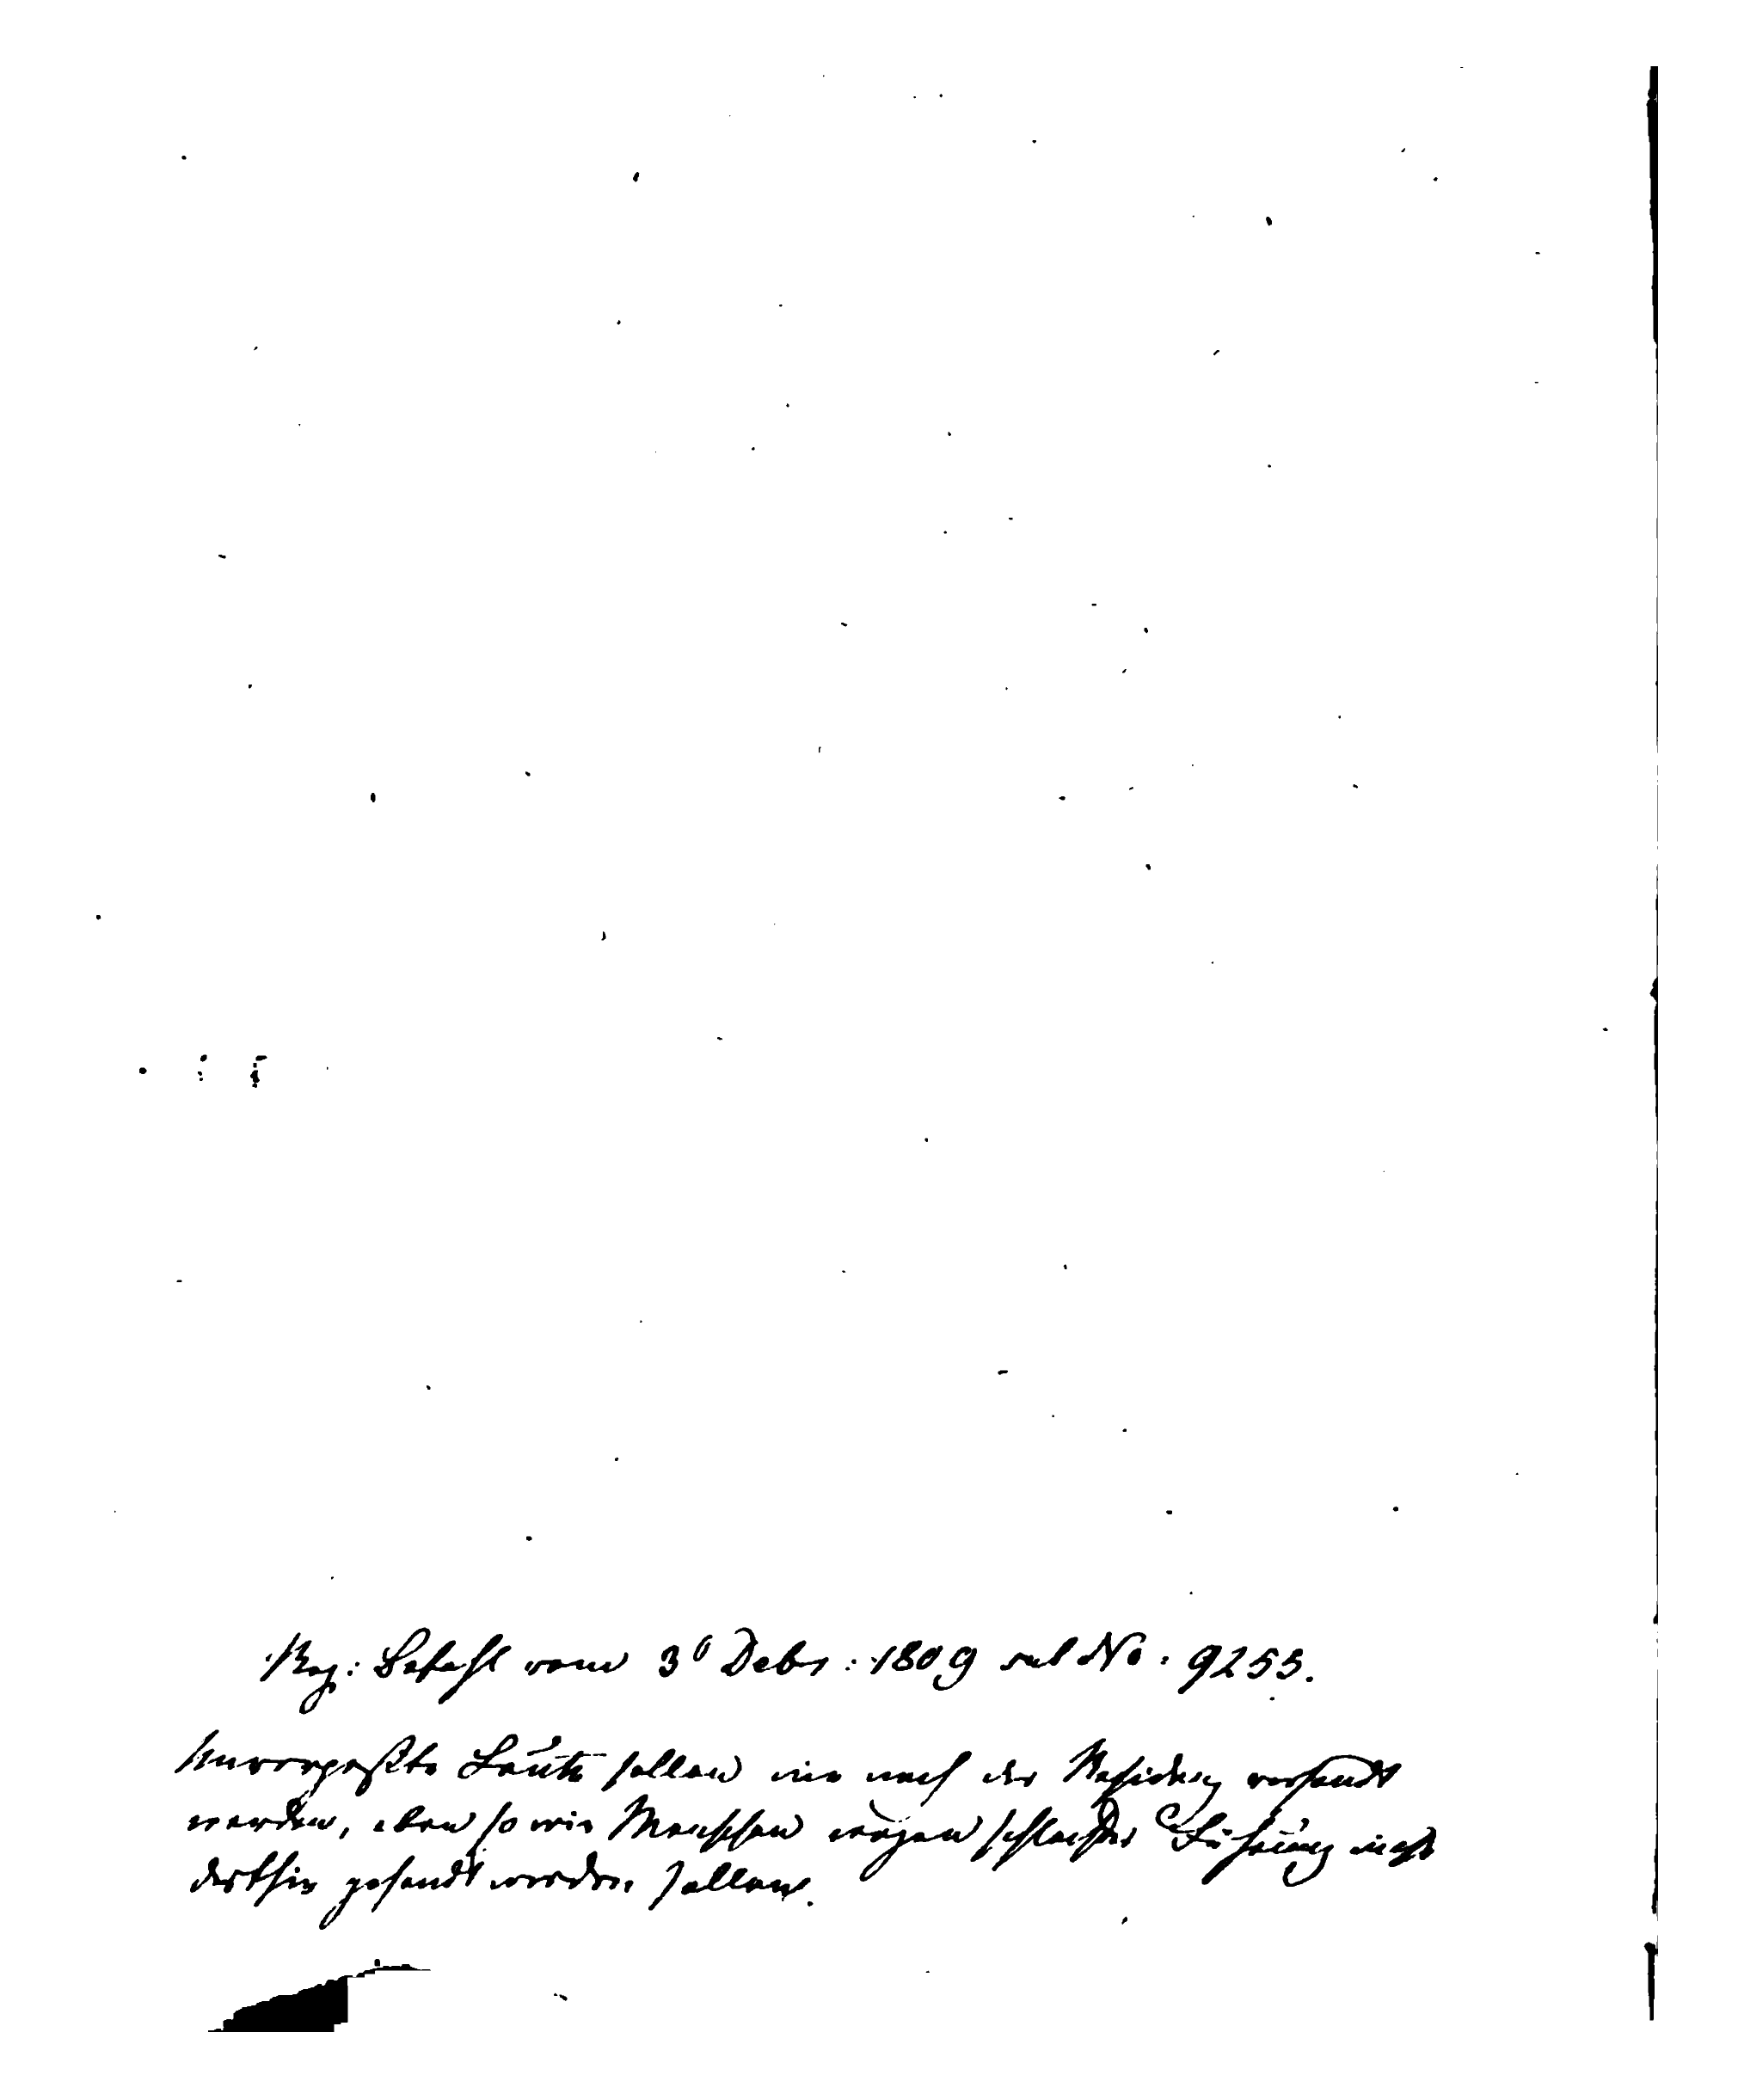 Reg: Befehl vom 30 Debr: 1809 sub No: 9255.
Unverpaßte Leute sollen nie nach der Residenz versandt
werden, eben so wie Menschen wegen schlechter Führung nicht
dorthin gesandt werden sollen.